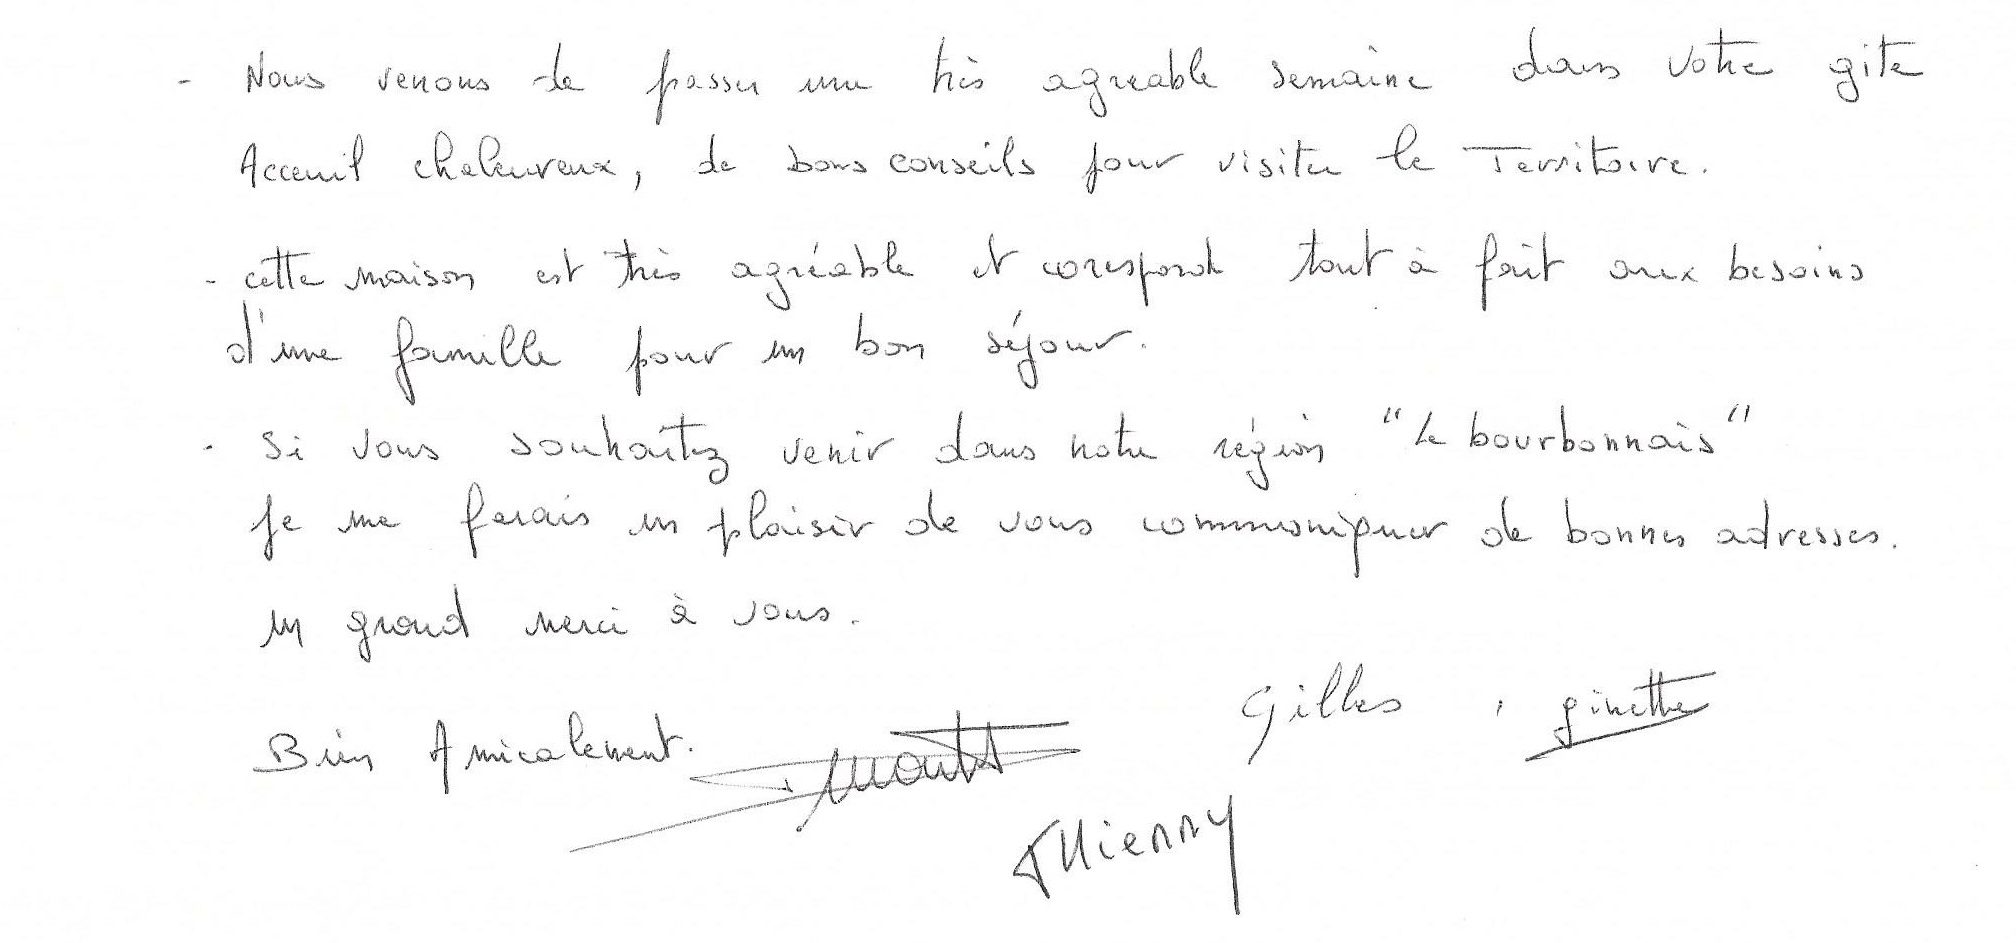 - Nous venons de passer une très agreable semaine dans votre gite
Acceuil chaleureux, de bons conseils pour visiter le Territoire.
- cette maison est très agréable et corespond tout à fait aux besoins
d'une famille pour un bon séjour.
- Si vous souhaitez venir dans notre région "le bourbonnais"
Je me ferais un plaisir de vous communiquer de bonnes adresses.
un grand merci à vous.
Gilles, ginette
Bien Amicalement.
Thierry